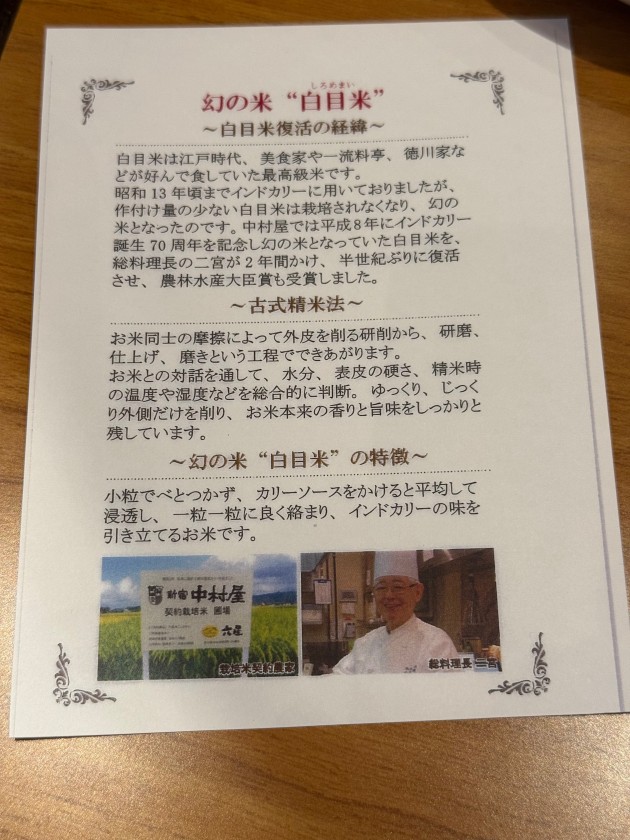 しろめまい
幻の米 “白目米”
～白目米復活の経緯～
白目米は江戸時代、美食家や一流料亭、徳川家な
どが好んで食していた最高級米です。
昭和 13 年頃までインドカリーに用いておりましたが、
作付け量の少ない白目米は栽培されなくなり、幻の
米となったのです。中村屋では平成8年にインドカリー
誕生 70 周年を記念し幻の米となっていた白目米を、
総料理長の二宮が 2 年間かけ、半世紀ぶりに復活
させ、農林水産大臣賞も受賞しました。
～古式精米法～
お米同士の摩擦によって外皮を削る研削から、研磨、
仕上げ、磨きという工程でできあがります。
お米との対話を通して、水分、表皮の硬さ、精米時
の温度や湿度などを総合的に判断。ゆっくり、じっく
り外側だけを削り、お米本来の香りと旨味をしっかりと
残しています。
～幻の米 “白目米” の特徴～
小粒でべとつかず、カリーソースをかけると平均して
浸透し、一粒一粒に良く絡まり、インドカリーの味を
引き立てるお米です。
新宿 中村屋
契約栽培米 圃場
栽培米契約農家
総料理長 二宮